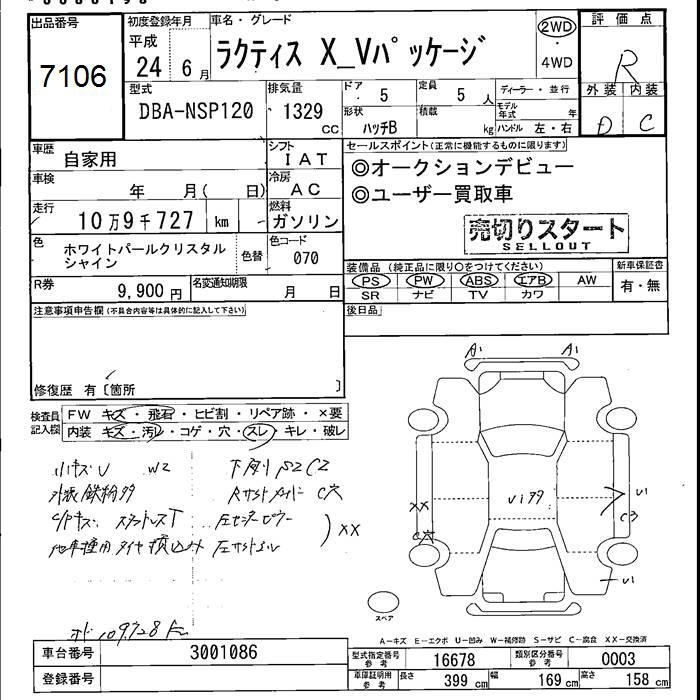 出品番号
7106
初度登録年月
平成
24 6月
車名・グレード
ラクティス X_Vパッケージ
2WD
4WD
評価点
R
外装 内装
D C
型式
DBA-NSP120
排気量
1329
cc
ドア
5
定員
5 人
形状
ハッチB
積載
kg
ディーラー・並行
モデル年式 年
ハンドル 左・右
車歴
自家用
シフト
IAT
車検
年 月( 日)
冷房
AC
走行
10万9千727 km
燃料
ガソリン
色
ホワイトパールクリスタル
シャイン
色替
色コード
070
R券
9,900 円
名変通知期限
月 日
セールスポイント(正常に機能するものに限ります)
◎オークションデビュー
◎ユーザー買取車
売切りスタート
SELLOUT
装備品(純正品に限り○をつけてください)
PS PW ABS エアB AW
SR ナビ TV カワ
新車保証書
有・無
後日品
注意事項申告欄(不具合内容等は具体的に記入して下さい)
修復歴 有〔箇所 〕
検査員
記入欄
FW キズ・飛石・ヒビ割・リペア跡・×要
内装 キズ・汚レ・コゲ・穴・スレ・キレ・破レ
A1 A1
小キズU W2
外板鉄粉多
XX
U1
C3
U1
スペア
A-キズ E-エクボ U-凹み W-補修跡 S-サビ C-腐食 XX-交換済
車台番号
3001086
登録番号
型式指定番号
参考
16678
類別区分番号
参考
0003
車庫証明用
参考
長さ
399
幅
169 cm
高さ
158 cm